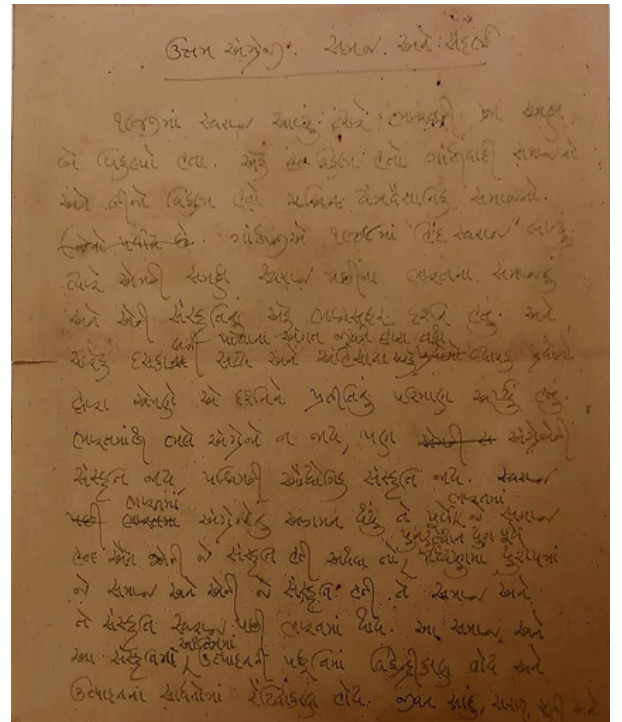 ઉત્તમ અંગ્રેજી. સમાજ અને સંદર્ભ
૧૯૪૭માં સ્વરાજ આવ્યું ત્યારે ભારતની સમક્ષ
બે વિકલ્પો હતા. એક વિકલ્પ હતો ગાંધીવાદી સમાજનો
અને બીજો વિકલ્પ હતો યંત્રવૈજ્ઞાનિક સમાજનો.
ગાંધીજીએ ૧૯૦૯માં 'હિંદ સ્વરાજ' લખ્યું
ત્યારે એમની સમક્ષ સ્વરાજ પછીના ભારતના સમાજનું
અને એની સંસ્કૃતિનું એક ભવ્યસુંદર દર્શન હતું. અને
પછી પોતાના અંગત જીવન દ્વારા તથા
ચારેક દસકા સત્ય અને અહિંસાના
દ્વારા એમણે એ દર્શનને પ્રતીતિનું પરિમાણ અર્પ્યું હતું.
ભારતમાંથી ભલે અંગ્રેજો ન જાય, પણ અંગ્રેજોની
સંસ્કૃતિ જાય પશ્ચિમની ઔદ્યોગિક સંસ્કૃતિ જાય. સ્વરાજ
ભારતમાં ભારતમાં
પછી અંગ્રેજોનું આગમન થયું તે પૂર્વે જે સમાજ
પુનરુત્થાન યુગ પૂર્વે
અને એની જે સંસ્કૃતિ હતી અથવા તો મધ્યયુગમાં યુરોપમાં
જે સમાજ અને એની જે સંસ્કૃતિ હતી તે સમાજ અને
તે સંસ્કૃતિ સ્વરાજ પછી ભારતમાં હોય. આ સમાજ અને
આ સંસ્કૃતિમાં, ઉત્પાદનની પદ્ધતિમાં વિકેન્દ્રીકરણ હોય અને
ઉત્પાદનનાં સાધનોમાં હોય. જીવન સાદું, સરળ, અને